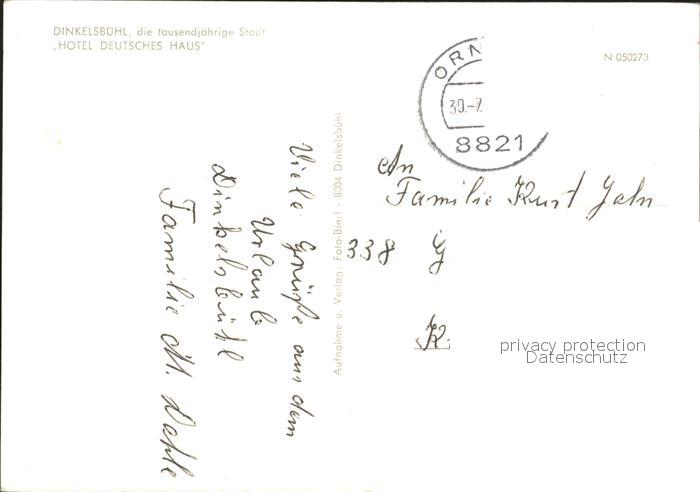 DINKELSBÜHL, die tausendjährige Stadt
„HOTEL DEUTSCHES HAUS"
N 050273
ORN
30.-7.
8821
Aufnahme u. Verlag: Foto-Bierl · 8804 Dinkelsbühl
Viele Grüße aus dem
Urlaub
Dinkelsbühl
Familie M. Dahle
An
Familie Kurt Jahn
338 G
K.
privacy protection
Datenschutz